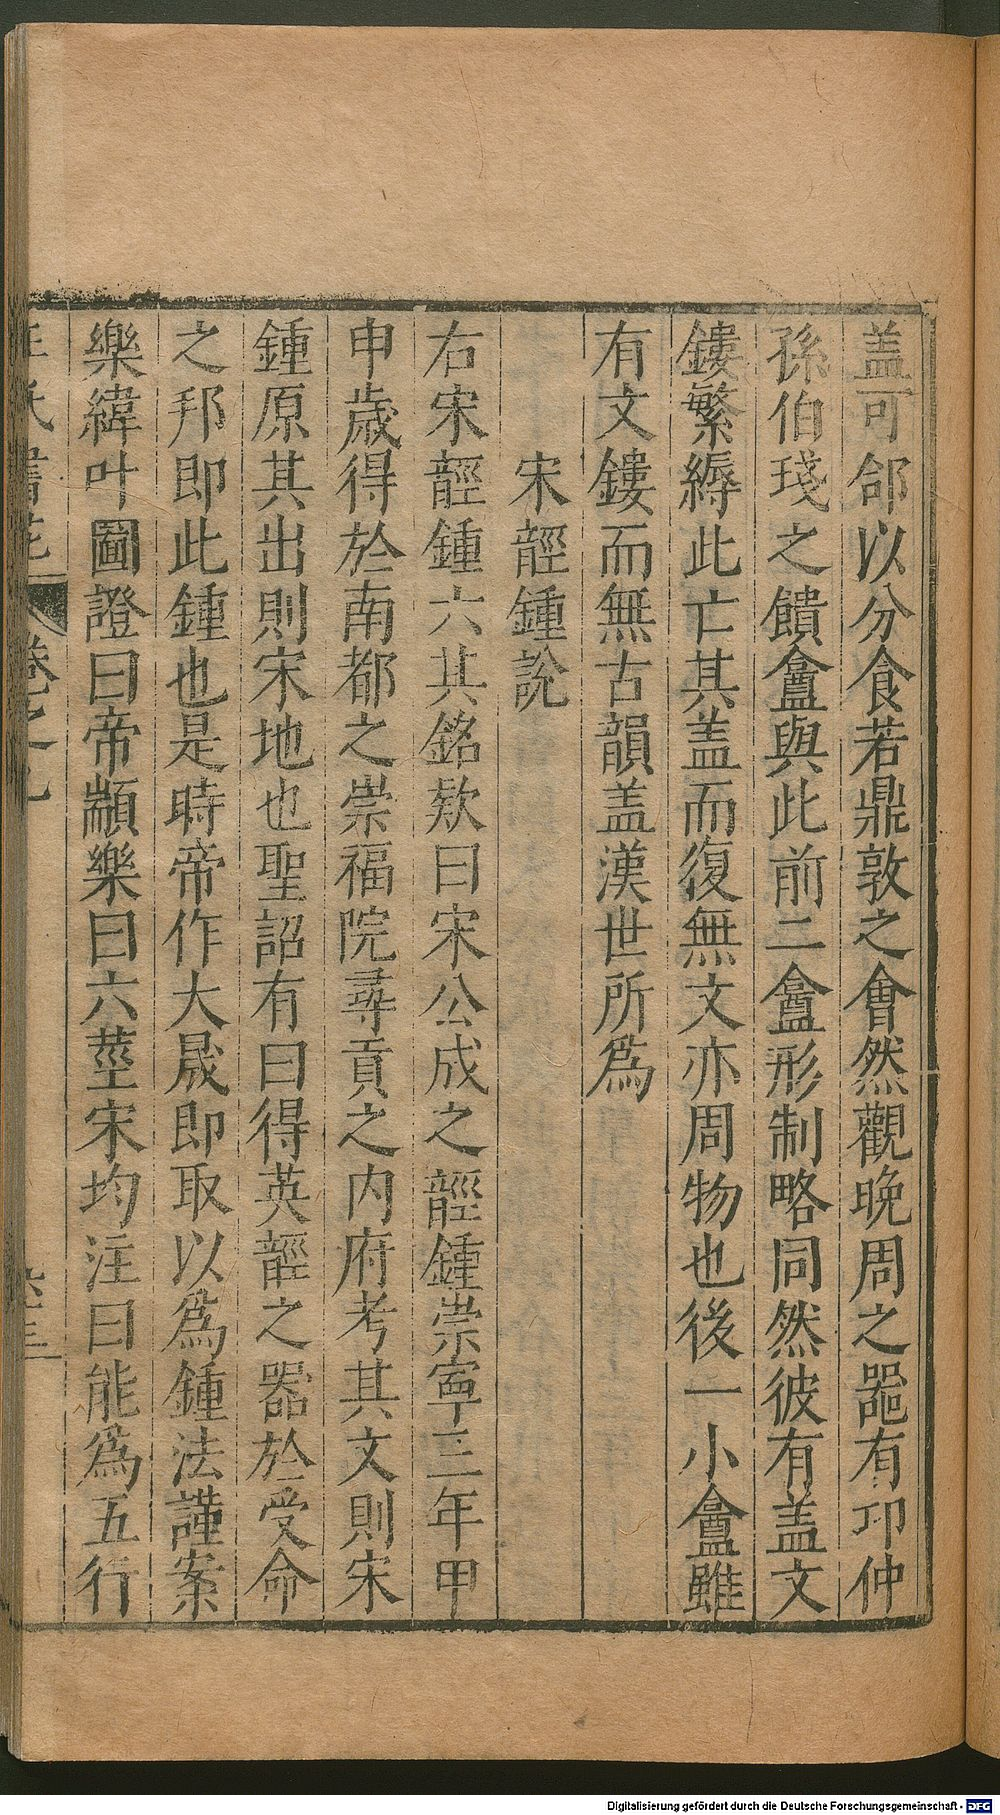 盖可郃以分食若鼎敦之會然觀晚周之噐有卭仲
孫伯㦵之饙盦與此前二盦形制略同然彼有盖文
鏤繁縟此亡其盖而復無文亦周物也後一小盦雖
有文鏤而無古韻盖漢世所爲
宋䪫鍾說
右宋䪫鍾六其銘欵曰宋公成之䪫鍾崇寧三年甲
申歲得於南都之崇福院尋貢之内府考其文則宋
鍾原其出則宋地也聖詔有曰得英䪫之器於受命
之邦即此鍾也是時帝作大晟即取以爲鍾法謹案
樂緯叶圖證曰帝顓樂曰六莖宋均注曰能爲五行
王氏書苑 卷之九
Digitalisierung gefördert durch die Deutsche Forschungsgemeinschaft - DFG